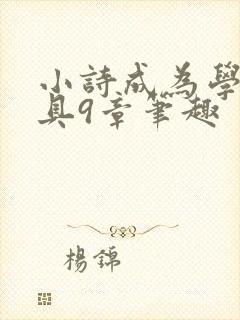 小詩成為學
具9章筆趣
楊錦